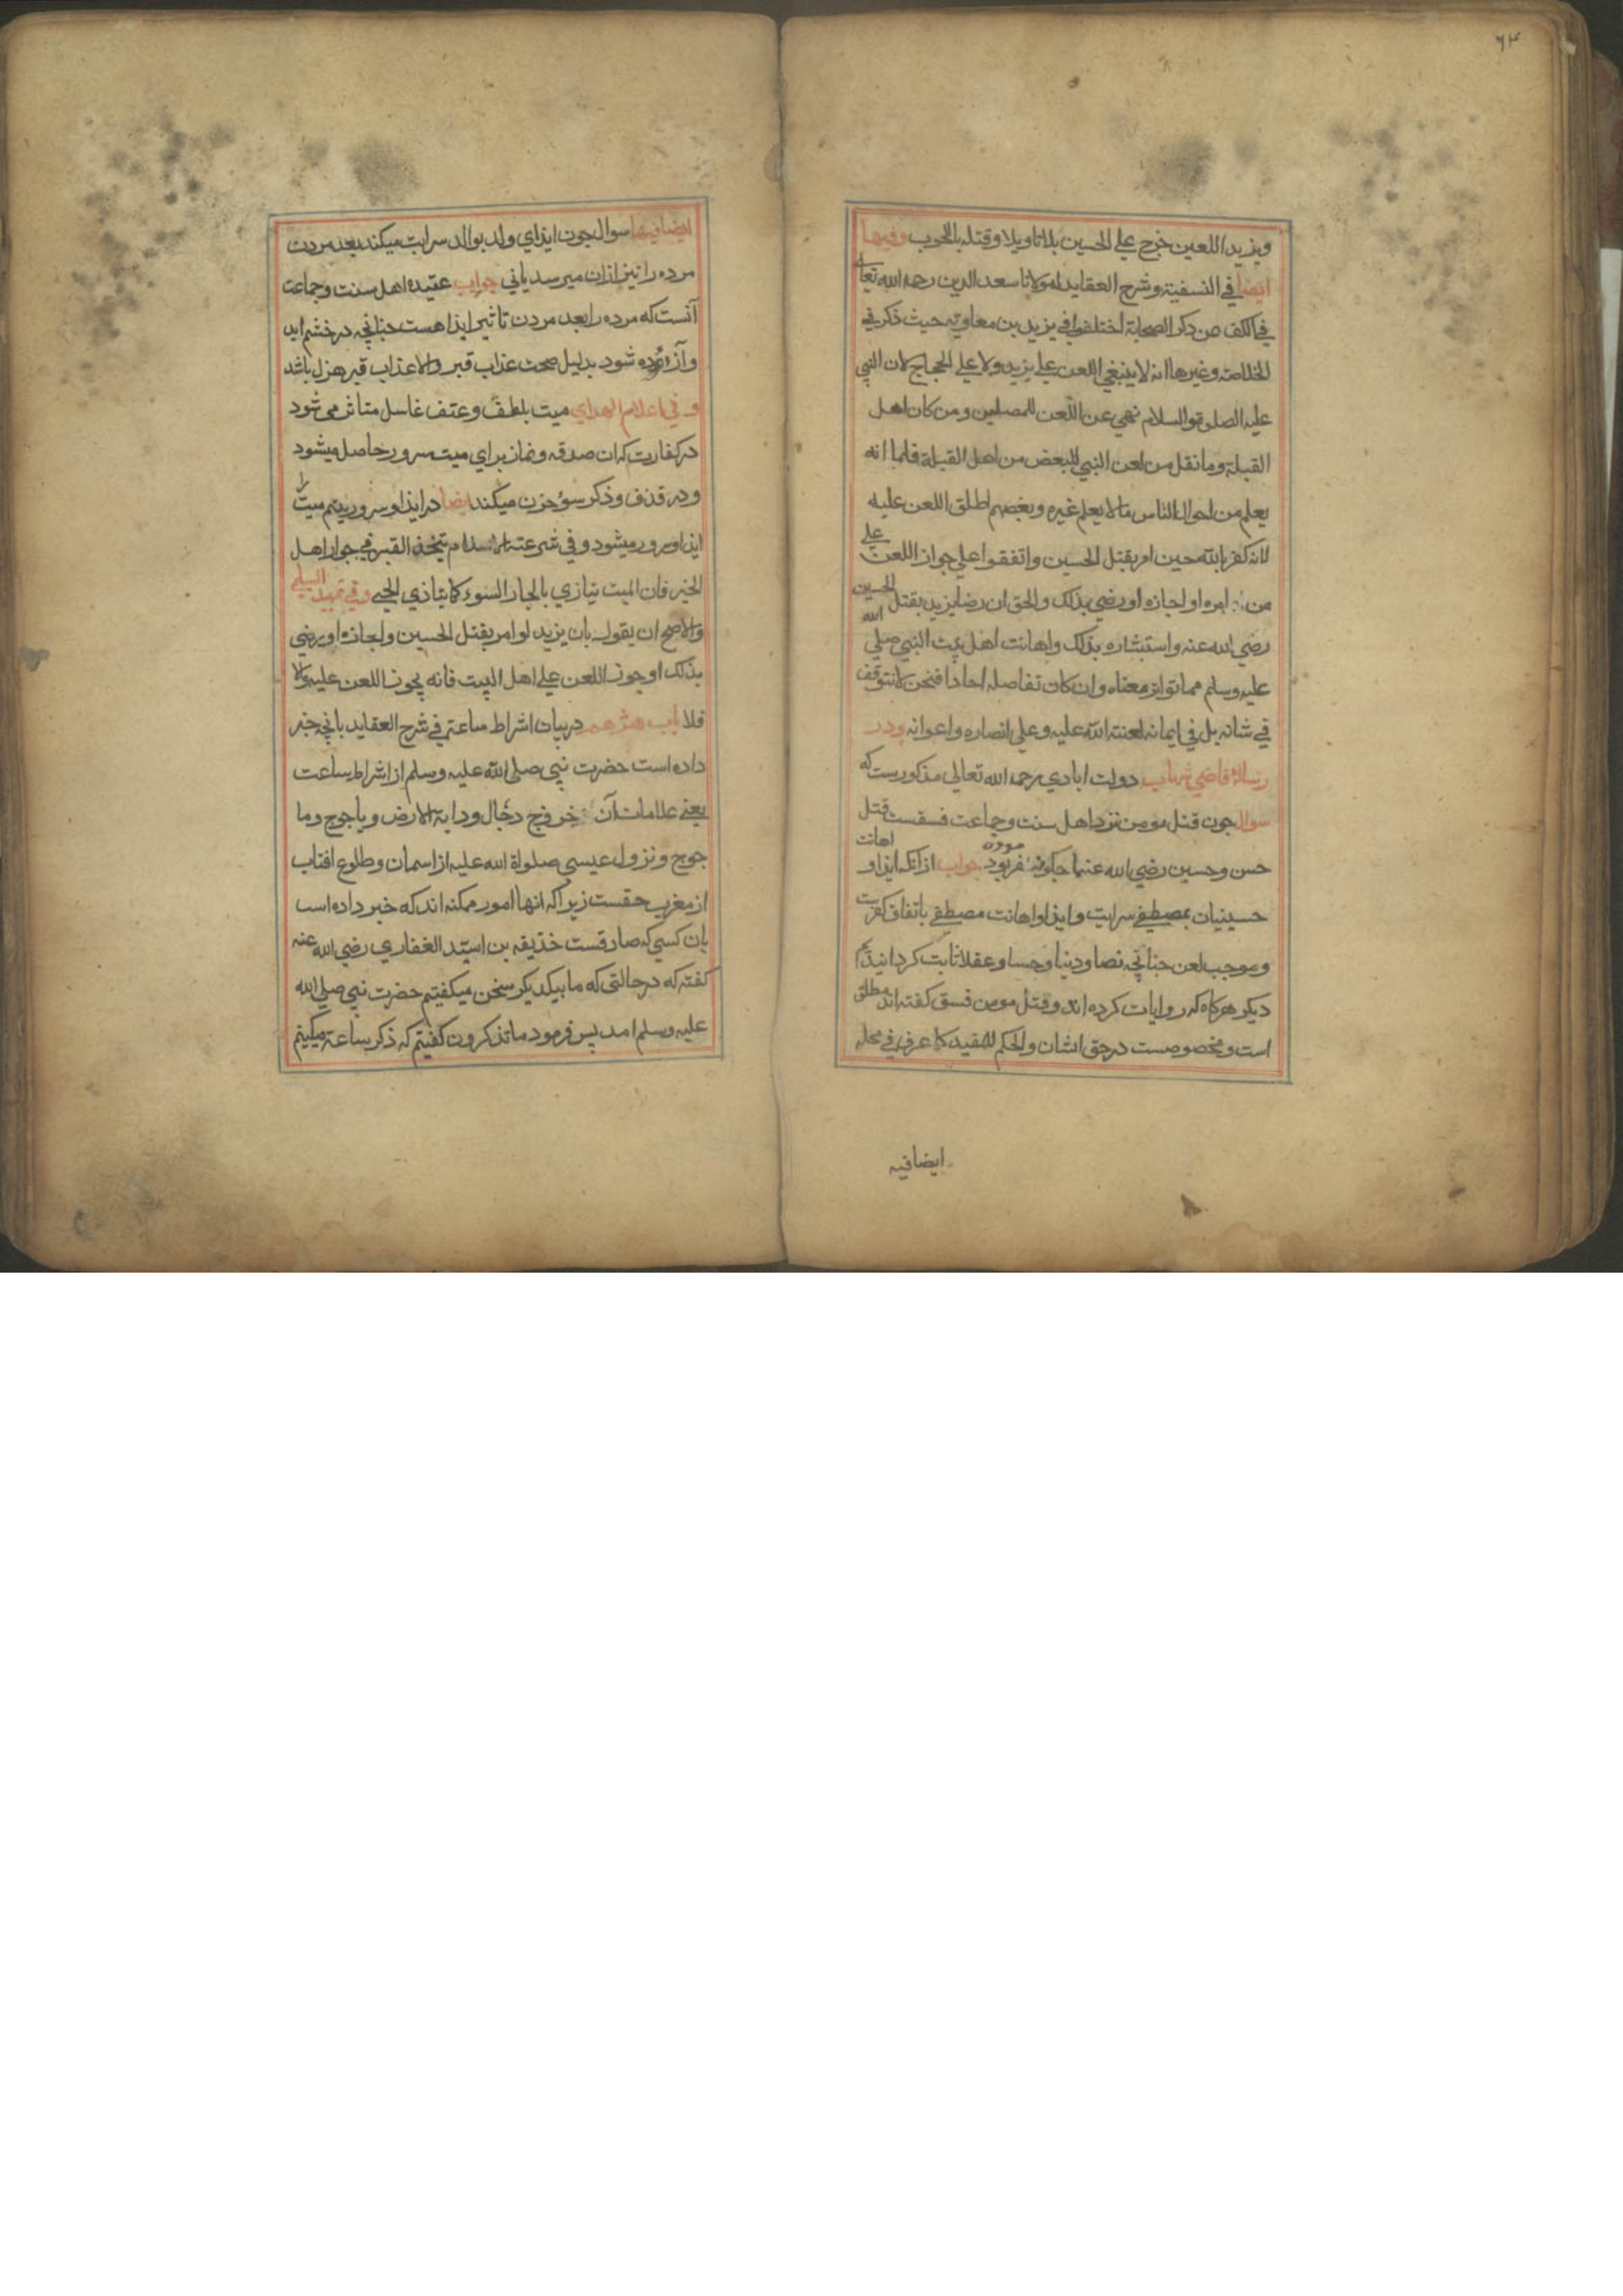 ۶۴
ويزيد اللعين خرج علي الحسين بلا تاويلا وقتله بالحرب وفيها
ايضا في النسفية وشرح العقايد لمولانا سعد الدين رحمة الله تعالي
في الكف عن ذكر الصحابة اختلفوا في يزيد بن معاوية حيث ذكر في
الخلاصة وغيرها انه لا ينبغي اللعن علي يزيد ولا علي الحجاج لان النبي
عليه الصلوة والسلام نهي عن اللعن للمصلين ومن كان اهل
القبلة وما نقل من لعن النبي للبعض من اهل القبلة فلما انه
يعلم من احوال الناس ما لا يعلم غيره وبعضهم اطلق اللعن عليه
لانه كفر بالله حين امر بقتل الحسين واتفقوا علي جواز اللعن علي
من امره او اجازه او رضي بذلك والحق ان رضا يزيد بقتل الحسين
رضي الله عنه واستبشاره بذلك واهانت اهل بيت النبي صلي الله
عليه وسلم مما تواتر معناه وان كان تفاصله احادا فنحن لا نتوقف
في شانه بل في ايمانه لعنته الله عليه وعلي انصاره واعوانه ودر
رسالۀ قاضي شهاب دولت ابادي رحمة الله تعالي مذكورست كه
سوال جون قتل مومن نزد اهل سنت وجماعت فسقست قتل
حسن وحسين رضي الله عنهما جكونه كفر بود جواب ازانكه ايذا و اهانت
حسينيان بمصطفي سرايت وايذا واهانت مصطفي باتفاق كفرست
وموجب لعن جنانچه نصا ودينا وحسا وعقلا ثابت كردانيدۀم
ديكر هركاه كه روايات كرده اند وقتل مومن فسق كفته اند مطلق
است ومخصوصست درحق ايشان والحكم للمقيد كما عرف في محله
ايضا فيه
ايضا فيها سوال جون ايذاي ولد بوالد سرايت ميكند بعد مردن
مرده را نيز ازان ميرسد ياني جواب عقيدۀ اهل سنت وجماعت
آنست كه مرده را بعد مردن تاثير ايذا هست جنانچه درخشم ايد
وآزرده شود بدليل صحت عذاب قبر والا عذاب قبر هزل باشد
و في اعلام الهداي ميت بلطف وعنف غاسل متاثر مي شود
در كفارت كه ان صدقه ونماز براي ميت سرور حاصل ميشود
ودر قذف وذكر سوء حزن ميكند ايضا در ايذا وسرور يتيم ميت را
ايذا وسرور ميشود وفي شرعته الاسلام يتخذ القبر في جوار اهل
الخير فان الميت يتاذي بالجار السوء كما يتاذي الحي وفي تمهيد السلمي
والاصح ان يقول بان يزيد لو امر بقتل الحسين واجازه او رضي
بذلك او جوز اللعن علي اهل البيت فانه يجوز اللعن عليه والا
فلا باب هژدهم دربيان اشراط ساعة في شرح العقايد بانچه خبر
داده است حضرت نبي صلي الله عليه وسلم از اشراط ساعت
يعني علامات آن خروج دجال ودابة الارض وياجوج وما
جوج ونزول عيسي صلواة الله عليه از اسمان وطلوع افتاب
از مغرب حقست زيراكه انها امور ممكنه اند كه خبر داده است
بان كسي كه صادقست حذيقه بن اسيد الغفاري رضي الله عنه
كفته كه درحالتي كه ما بيكديكر سخن ميكفتيم حضرت نبي صلي الله
عليه وسلم امد پس فرمود ما تذكرون كفيتم كه ذكر ساعة ميكنيم